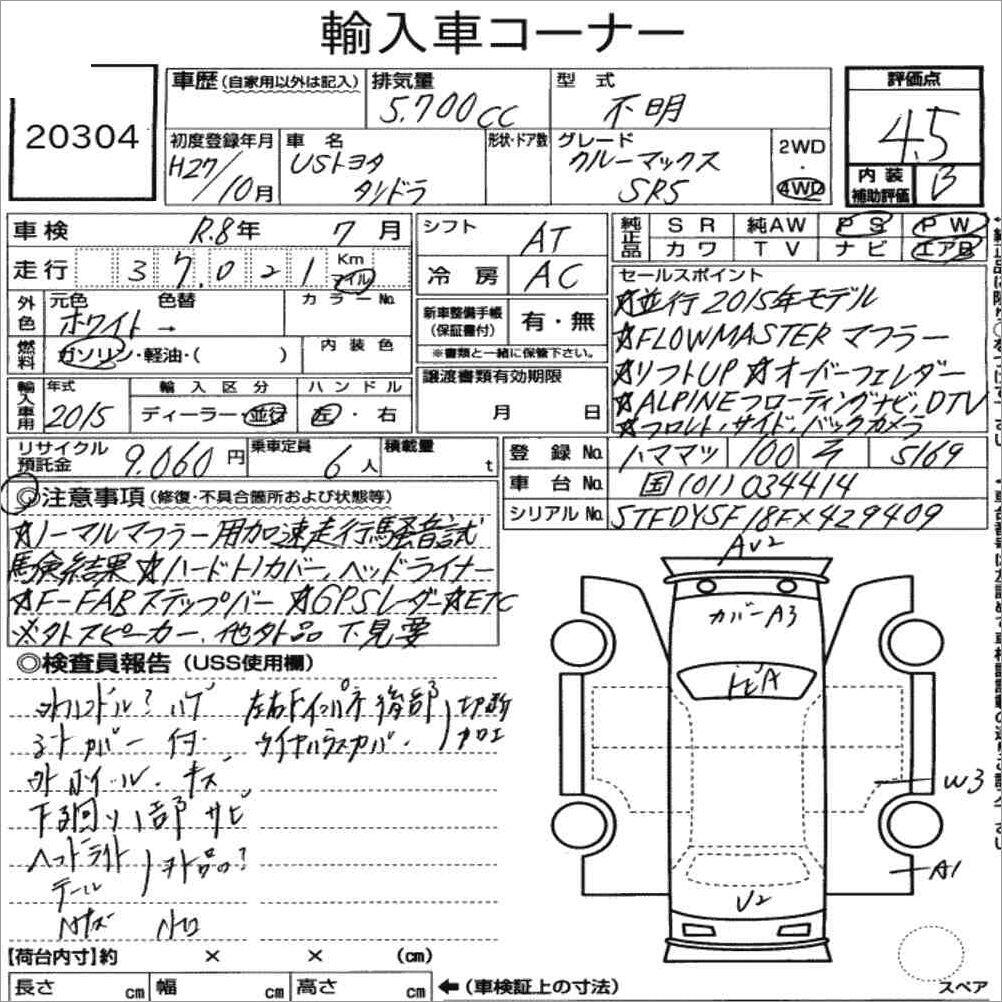 輸入車コーナー
20304
車歴(自家用以外は記入)
排気量
5.700cc
型式
不明
評価点
4.5
初度登録年月
H27/10月
車名
USトヨタ
タンドラ
形状・ドア数
グレード
クルーマックス
SR5
2WD
・
4WD
内装
補助評価
B
車検
R.8年
7月
走行
37,021
Km
マイル
シフト
AT
冷房
AC
純正品
SR
純AW
PS
PW
カワ
TV
ナビ
エアB
外色
元色
ホワイト→
色替
カラーNo.
新車整備手帳
(保証書付)
有・無
※書類と一緒に保管下さい。
燃料
ガソリン・軽油・( )
内装色
輸入車用
年式
2015
輸入区分
ディーラー・並行
ハンドル
左・右
譲渡書類有効期限
月 日
セールスポイント
☆並行2015年モデル
☆FLOWMASTERマフラー
☆リフトUP ☆オーバーフェンダー
☆ALPINEフローティングナビ、DTV
☆フロント、サイド、バックカメラ
リサイクル
預託金
9.060円
乗車定員
6人
積載量
t
登録No.
ハママツ
100
ラ
5169
車台No.
国(01)034414
シリアルNo.
5TFDY5F18FX429409
◎注意事項(修復・不具合箇所および状態等)
☆ノーマルマフラー用加速走行騒音試
験結果 ☆ハードトノカバー、ヘッドライナー
☆F-FABステップバー ☆GPSレーダー ☆ETC
※外スピーカー、他外品 下見要
◎検査員報告(USS使用欄)
外ハンドル? ハゲ
シートカバー付
外ホイール、キズ
下回り、一部サビ
ヘッドライト
テール
外品の?
後部
切断
加工
AU2
カバーA3
トビA
W3
A1
U2
スペア
【荷台内寸】約 × × (cm)
長さ cm
幅 cm
高さ cm
←(車検証上の寸法)